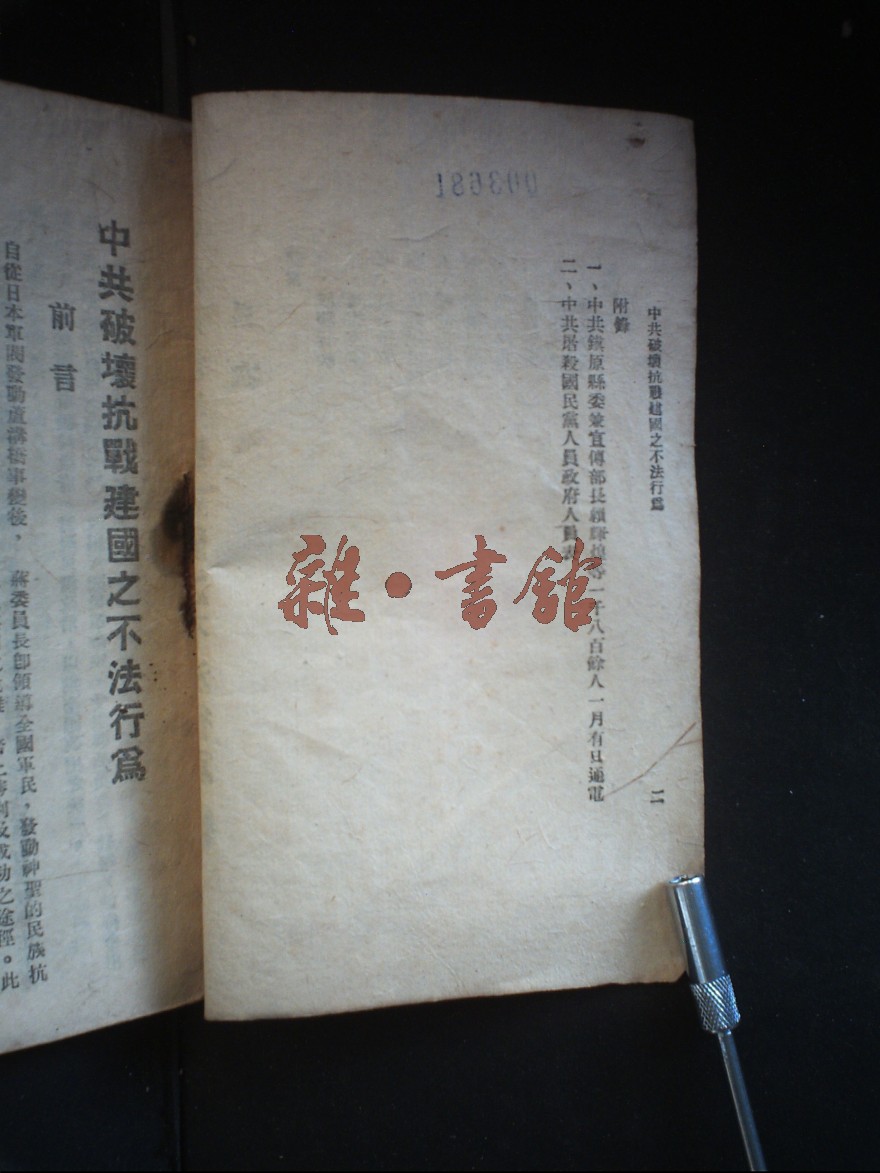 中共破壞抗戰建國之不法行爲
二
附錄
一、中共鎮原縣委兼宣傳部長 一千八百餘人一月有旦通電
二、中共 殺國民黨人員政府人員
雜·書館
003681
中共破壞抗戰建國之不法行爲
前言
自從日本軍閥發動蘆溝橋事變後，蔣委員長卽領導全國軍民，發動神聖的民族抗
成功之途徑。此